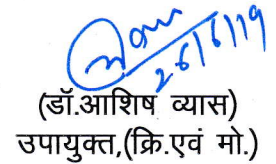 26/6/19
(डॉ.आशिष व्यास)
उपायुक्त,(क्रि.एवं मो.)